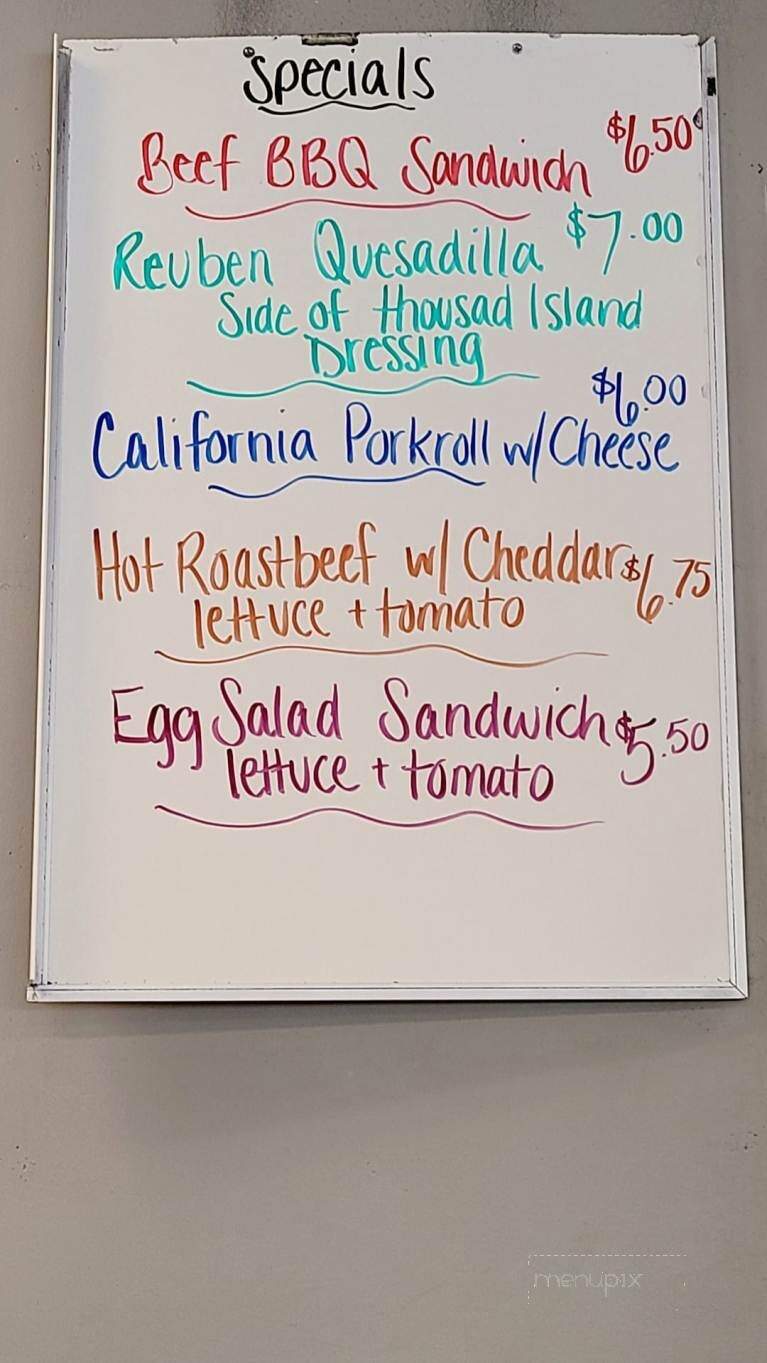 Specials
Beef BBQ Sandwich $6.50
Reuben Quesadilla $7.00
Side of thousad Island
Dressing
$6.00
California Porkroll w/ Cheese
Hot Roastbeef w/ Cheddar $6.75
lettuce + tomato
Egg Salad Sandwich $5.50
lettuce + tomato
menupix